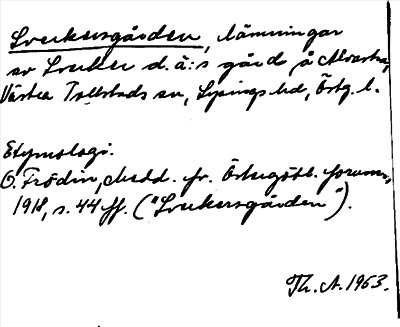 Sverkersgården, lämningar
av Sverker d.ä:s gård å Alvastra,
Västra Tollstads sn, Lysings hd, Östg. l.
Etymologi.
O. Frödin, Medd. fr. Östergötl. fornm.,
1918, s. 44 ff. ("Sverkersgården").
Th. A. 1963.